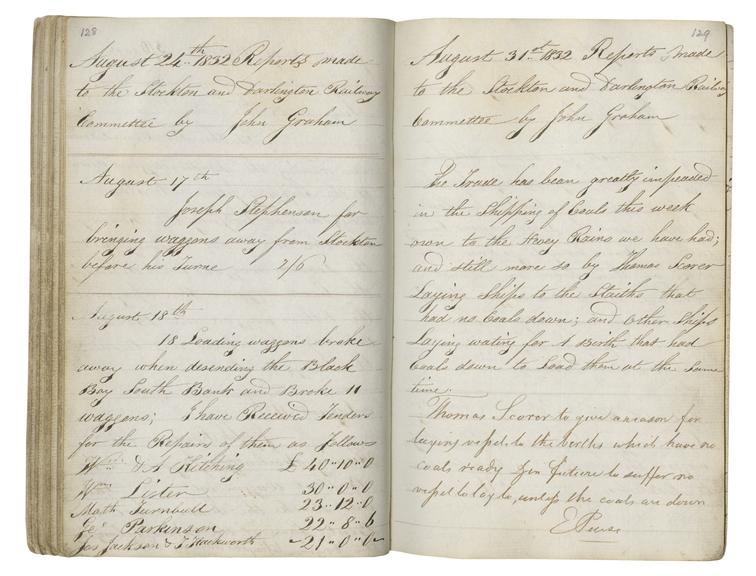 128
August 24th 1832 Reports made
to the Stockton and Darlington Railway
Committee by John Graham
August 17th
Joseph Stephenson for
bringing waggons away from Stockton
before his Turne 2/6
August 18th
18 Loading waggons broke
away when desending the Black
Boy South Bank and Broke 11
waggons; I have Received Tenders
for the Repairs of them as follows
Wm & A Kitching £ 40"10"0
Wm Lister 30"0"0
Math Turnbull 23"12"0
Geo Parkinson 22"8"6
Jos Jackson & T Hackworth 21"0"0
129
August 31st 1832 Reports made
to the Stockton and Darlington Railway
Committee by John Graham
The Trade has been greatly impeaded
in the Shipping of Coals this week
own to the Hevey Rains we have had;
and still more so by Thomas Scorer
Laying Ships to the Staiths that
had no Coals down; and Other Ships
Laying wating for A Berth that had
Coals down to Load them at the Same
time.
Thomas Scorer to give a reason for
laying vessels to the berths which have no
coals ready & in future to suffer no
vessel to lay to, unless the coals are down
E Pease